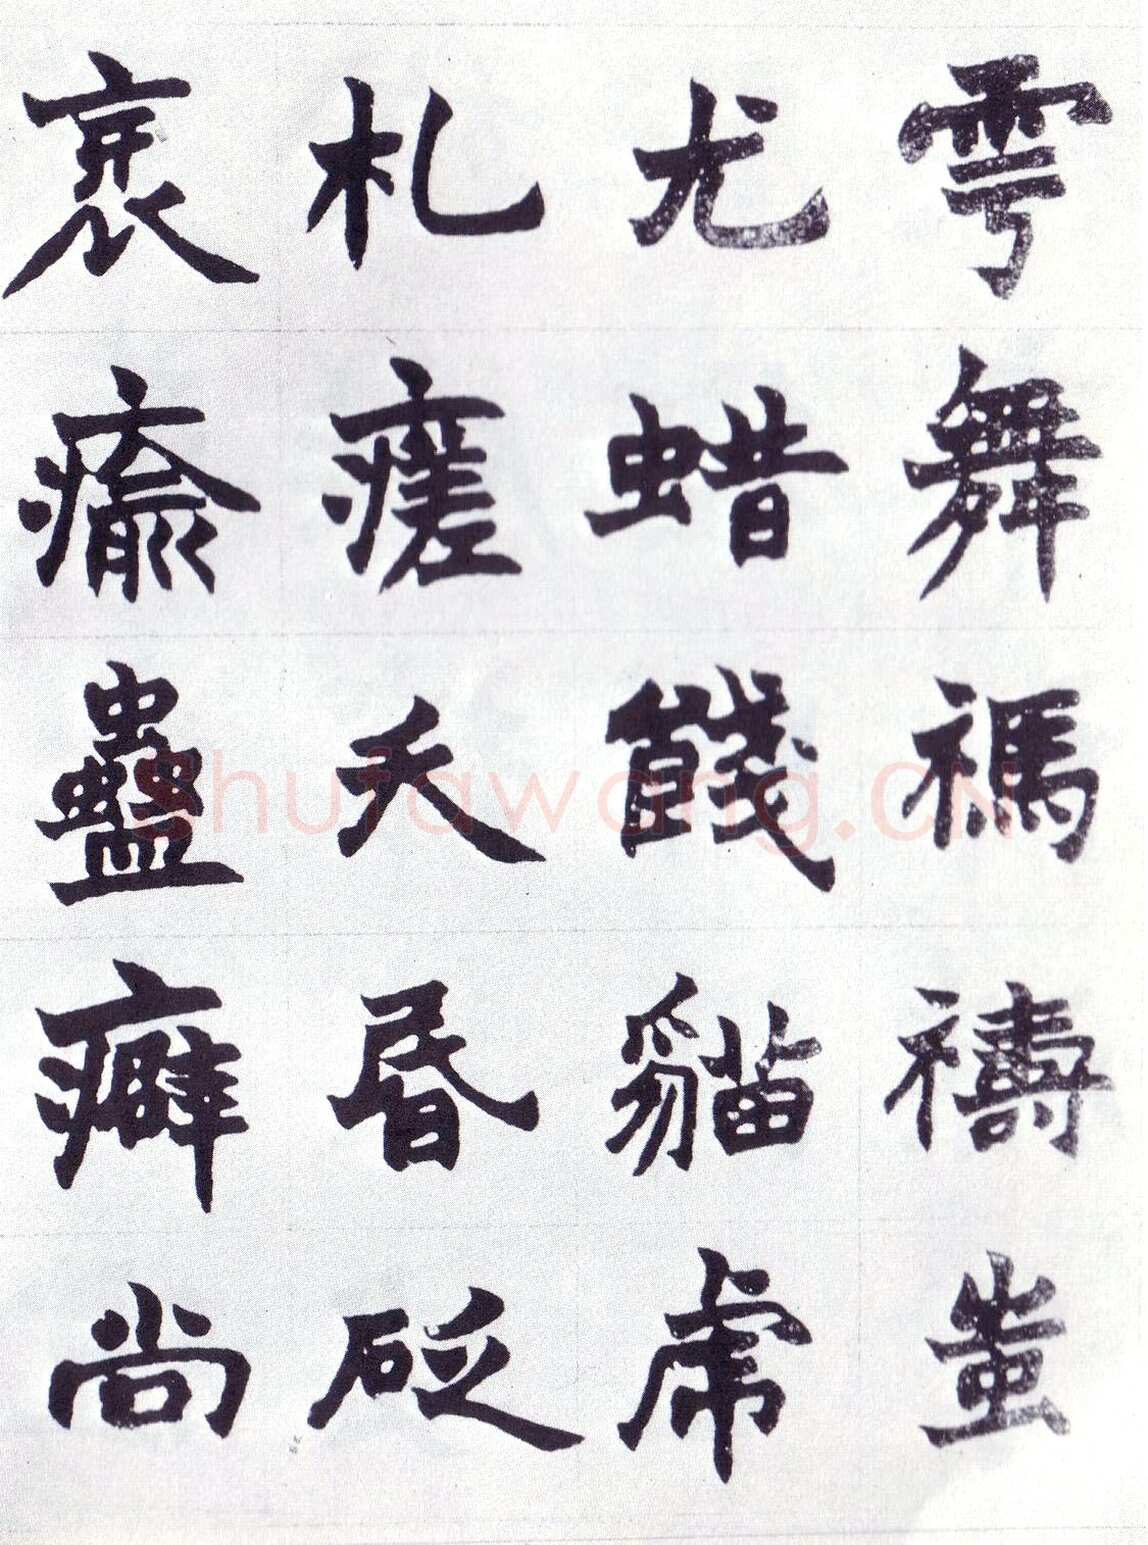 雩舞禡禱蚩
尤蜡餞貓虎
札瘥夭昬砭
衰瘉蠱癖尚
Shufawang.CN